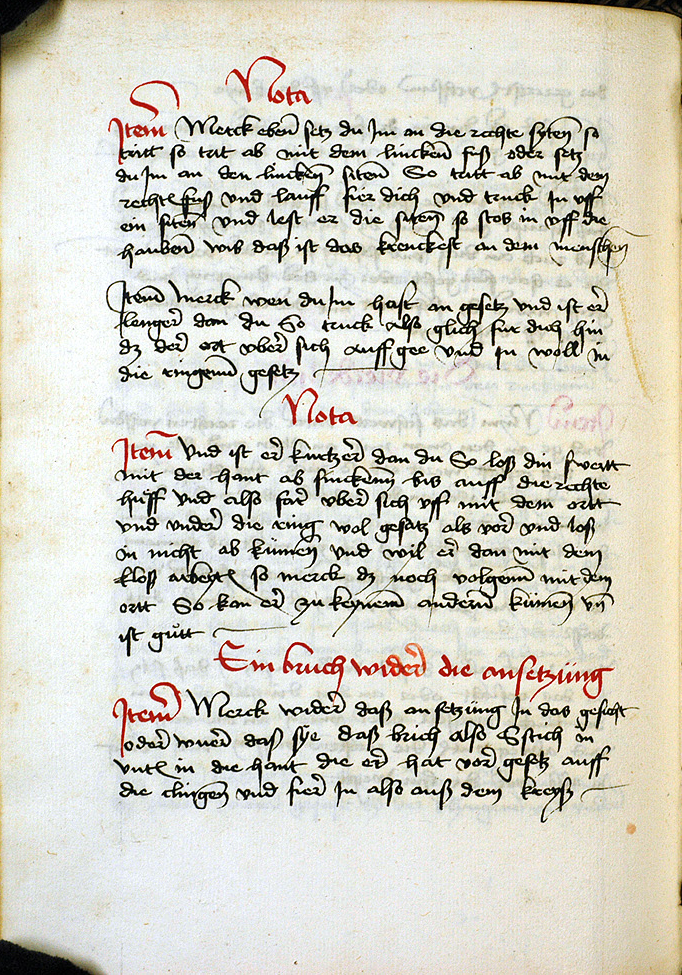 Nota
Item Merck eben setz du im an die rechte syten so
tritt so trit ab mit dem lincken fuß oder setz
du im an den lincken siten So tritt ab mit dem
rechten fuß und lauff fier dich und truck in uff
ein siten und lest er die siten so stos in uff die
hauben wis daß ist das krenckest an dem menschen
Item merck wen du im hast an gesetz und ist er
lenger dan du So truck also glich fur dich hin
dz der ort uber sich auff gee und in woll in
die ringenn gesetz
Nota
Item Und ist er kurtzer dan du So loß din swertt
mit der hant ab sinckenn bis auff die rechte
huff und also far uber sich uff mit dem ortt
und under die ring wol gesatz als vor und loß
in nicht ab kumen und wil er dan mit dem
kloß arbeyten so merck dz noch volgenn mit dem
ortt So kan er zu keynem andern kumen un
ist gutt
Ein bruch wider die ansetzung
Item Merck wider daß ansetzung In das gesicht
oder wuer daß sye daß brich also Sstich in
unten in die hant die er hat vor gesetz auff
die clingen und fier in also auß dem kreyß